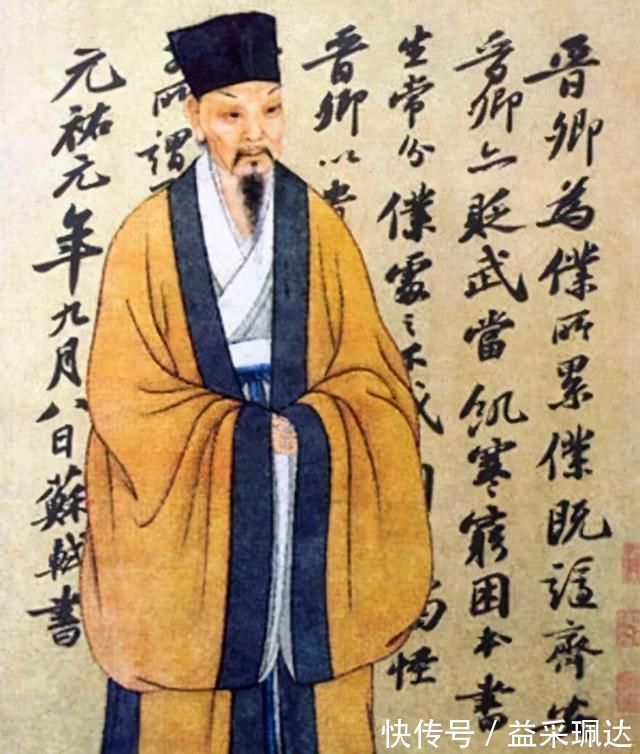 晉卿為僕所累僕既謫齊安
晉卿亦貶武當飢寒窮困本書
生常分僕處之不戚 怪
晉卿以貴
所謂
元祐元年九月八日蘇軾書
快传号 / 益采珮达